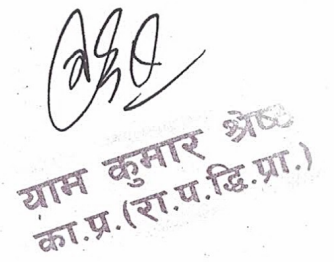 याम कुमार श्रेष्ठ
का.प्र.(रा.प.द्धि.प्रा.)